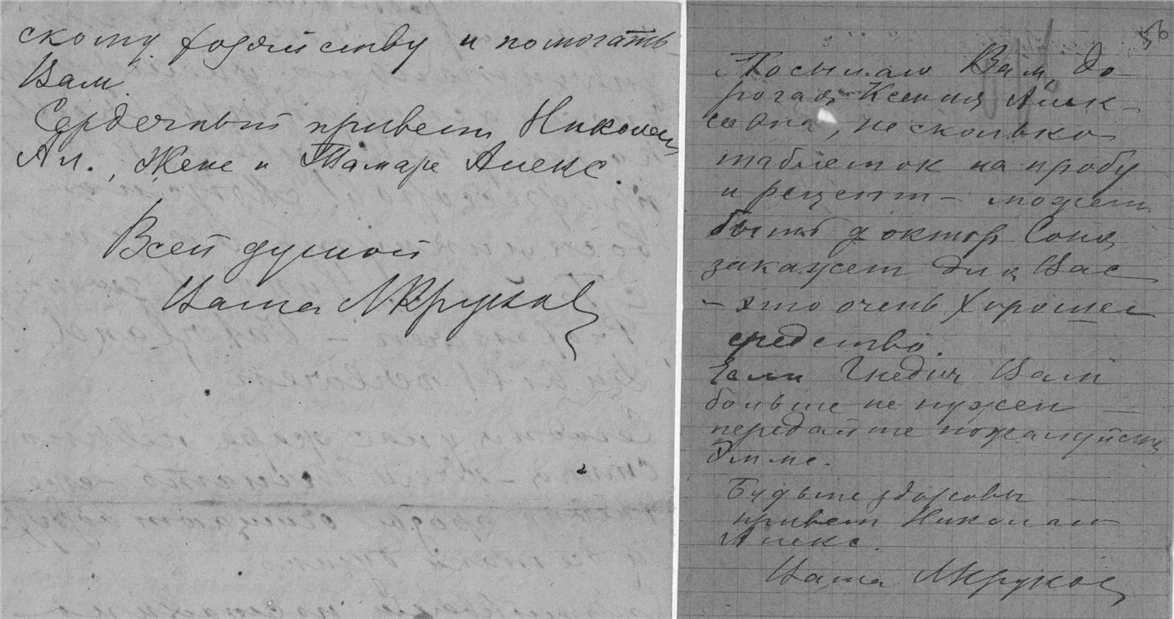 скому хозяйству и помогать
Вам.
Сердечный привет Николаю
Ал., Жене и Тамаре Алекс.
Всей душой
Ваша МКрукова
56
Посылаю Вам, до-
рогая Ксения Алек-
совна, несколько
таблеток на пробу
и рецепт – может
быть доктор Соня
закажет для Вас
– это очень хорошее
средство.
Если Гнедич Вам
больше не нужен –
передайте пожалуйста
Эмме.
Будьте здоровы –
привет Николаю
Алекс.
Ваша МКрукова